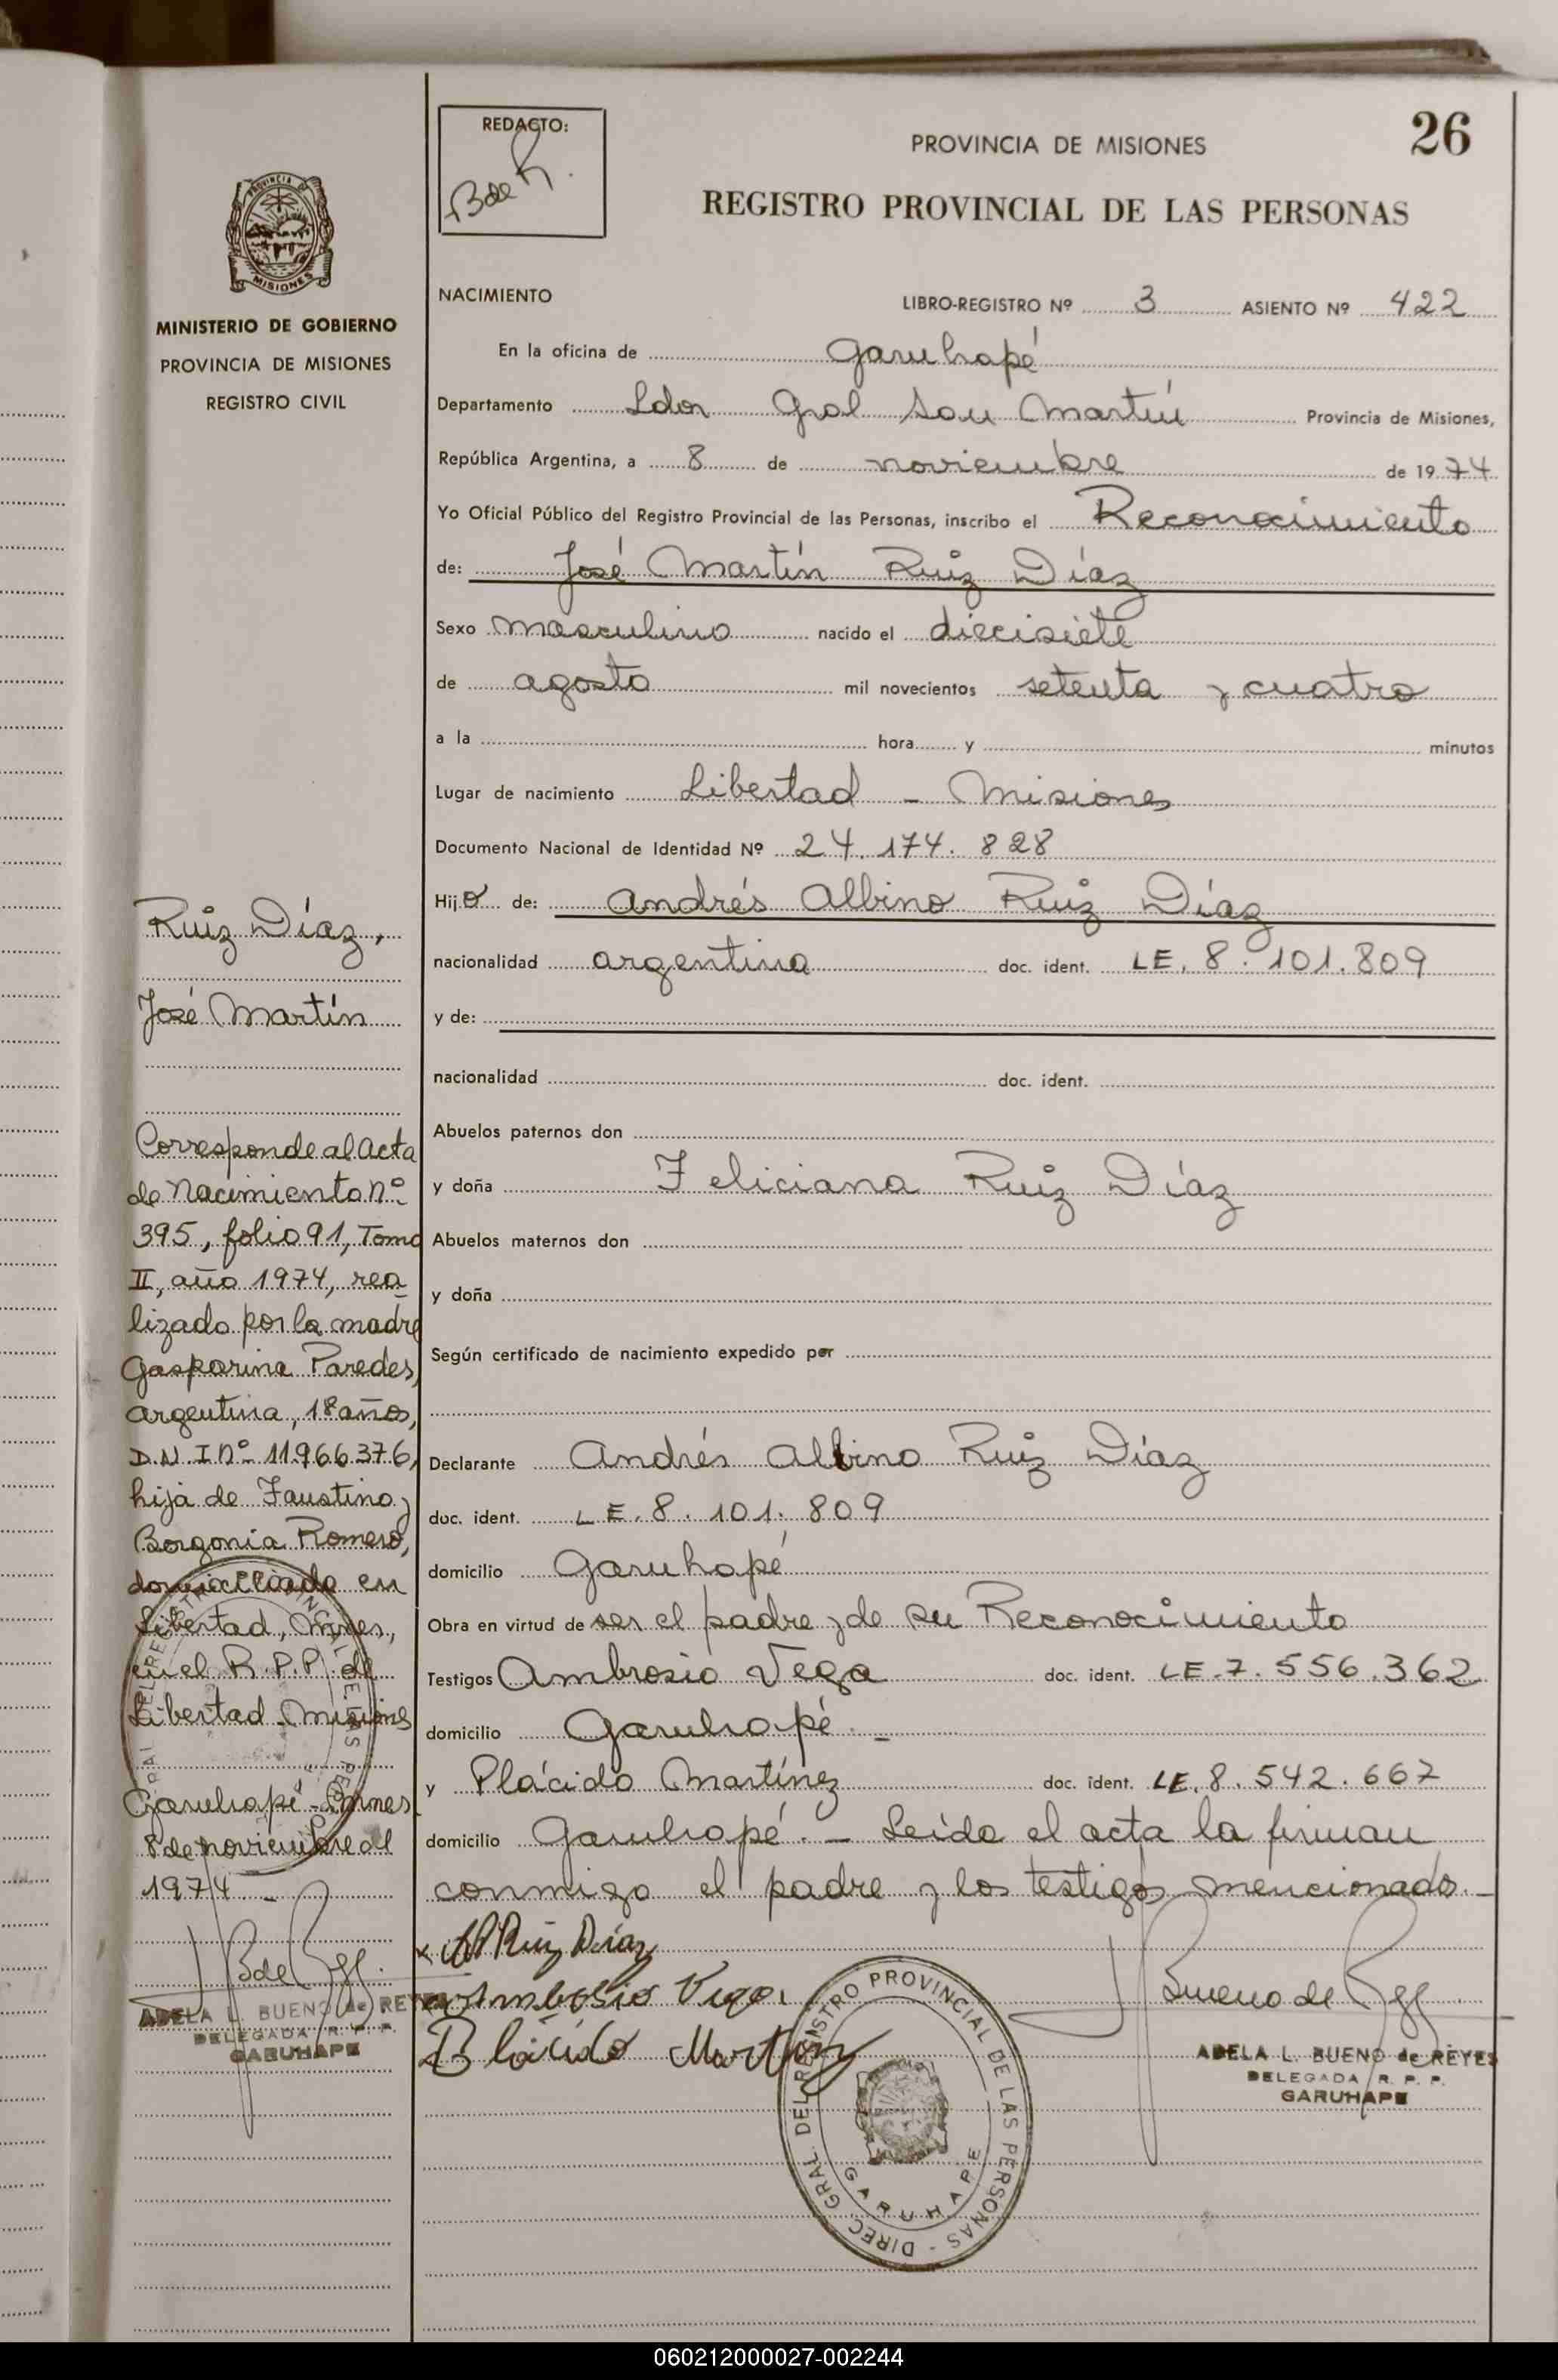 26
REDACTO:
B de R.
PROVINCIA DE MISIONES
REGISTRO PROVINCIAL DE LAS PERSONAS
PROVINCIA DE
MISIONES
MINISTERIO DE GOBIERNO
PROVINCIA DE MISIONES
REGISTRO CIVIL
NACIMIENTO
LIBRO-REGISTRO Nº 3 ASIENTO Nº 422
En la oficina de Garuhapé
Departamento Ldor Gral San Martín Provincia de Misiones,
República Argentina, a 8 de noviembre de 1974
Yo Oficial Público del Registro Provincial de las Personas, inscribo el Reconocimiento
de: José Martín Ruiz Díaz
Sexo masculino nacido el diecisiete
de agosto mil novecientos setenta y cuatro
a la hora y minutos
Lugar de nacimiento Libertad - Misiones
Documento Nacional de Identidad Nº 24.174.828
Hijo de: Andrés Albino Ruiz Díaz
nacionalidad argentina doc. ident. LE. 8.101.809
y de:
nacionalidad doc. ident.
Abuelos paternos don
y doña Feliciana Ruiz Díaz
Abuelos maternos don
y doña
Según certificado de nacimiento expedido por
Declarante Andrés Albino Ruiz Díaz
doc. ident. LE. 8.101.809
domicilio Garuhapé
Obra en virtud de ser el padre y de su Reconocimiento
Testigos Ambrosio Vega doc. ident. LE. 7.556.362
domicilio Garuhapé. -
y Plácido Martínez doc. ident. LE. 8.542.667
domicilio Garuhapé. - Leída el acta la firman
conmigo el padre y los testigos mencionados. -
Ruiz Díaz
Ambrosio Vega
Plácido Martínez
Bueno de
ADELA L. BUENO de REYES
DELEGADA R. P. P.
GARUHAPE
DIREC. GRAL. DEL REGISTRO PROVINCIAL DE LAS PERSONAS -
GARUHAPE
Ruiz Díaz,
José Martín
Corresponde al Acta
de Nacimiento nº
395, folio 91, Tomo
II, año 1974, rea
lizado por la madre
Gasparina Paredes,
argentina, 18 años,
D.N.I nº 11.966.376,
hija de Faustino y
Borgonia Romero,
domiciliada en
Libertad, Mnes.,
en el R.P.P. de
Libertad - Misiones
Garuhapé - Mnes
8 de noviembre de
1974 -
ADELA L. BUENO de REYES
DELEGADA R. P. P.
GARUHAPE
060212000027-002244